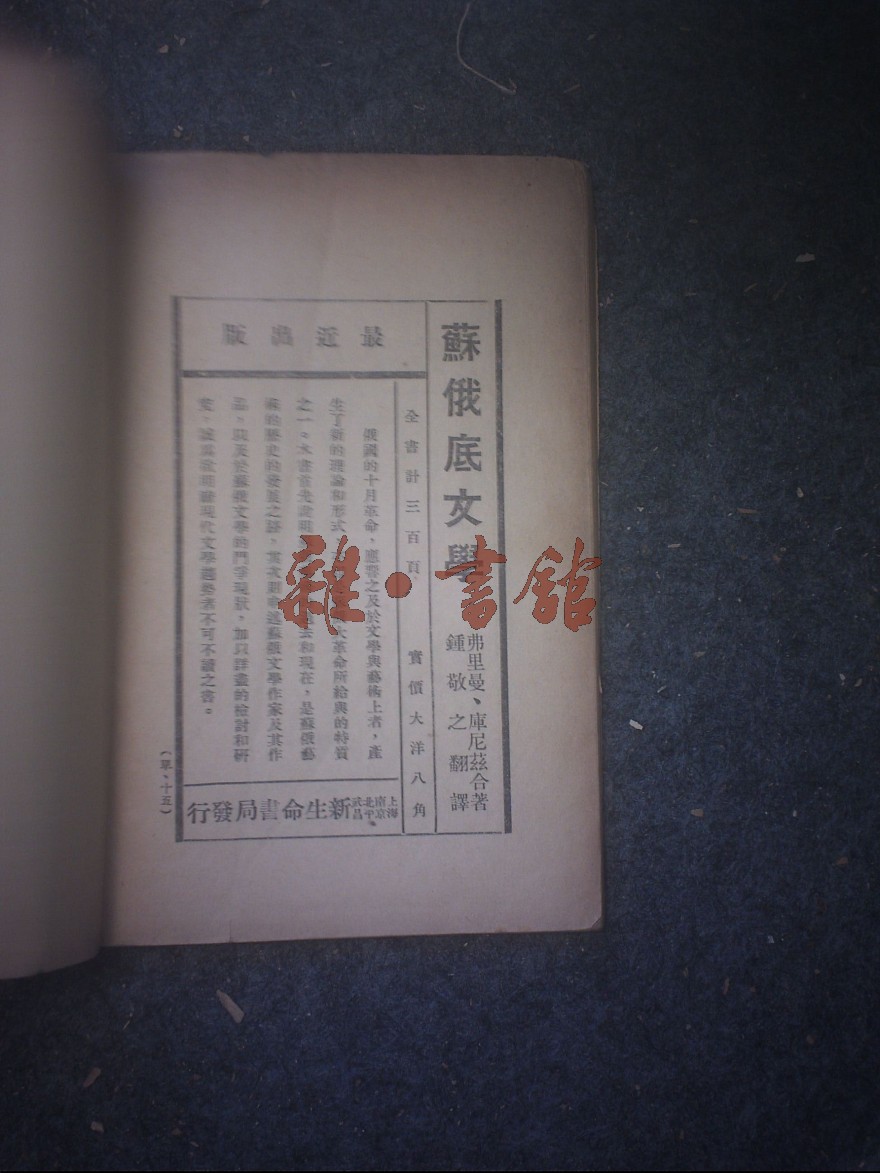 蘇俄底文學
弗里曼、庫尼茲合著
鍾敬之翻譯
全書計三百頁 實價大洋八角
最近出版
俄國的十月革命,應響之及於文學與藝術上者,產
生了新的理論和形式 大革命所給與的特質
之一。本書首先說明 去和現在,是蘇俄藝
術的歷史的發展之路,其次則命述蘇俄文學作家及其作
品,以及於蘇俄文學的鬥爭現狀,加以詳盡的檢討和研
究,誠為欲明瞭現代文學趨勢者不可不讀之書。
上海 南京 北平、武昌 新生命書局發行
(單、十五)
雜·書館